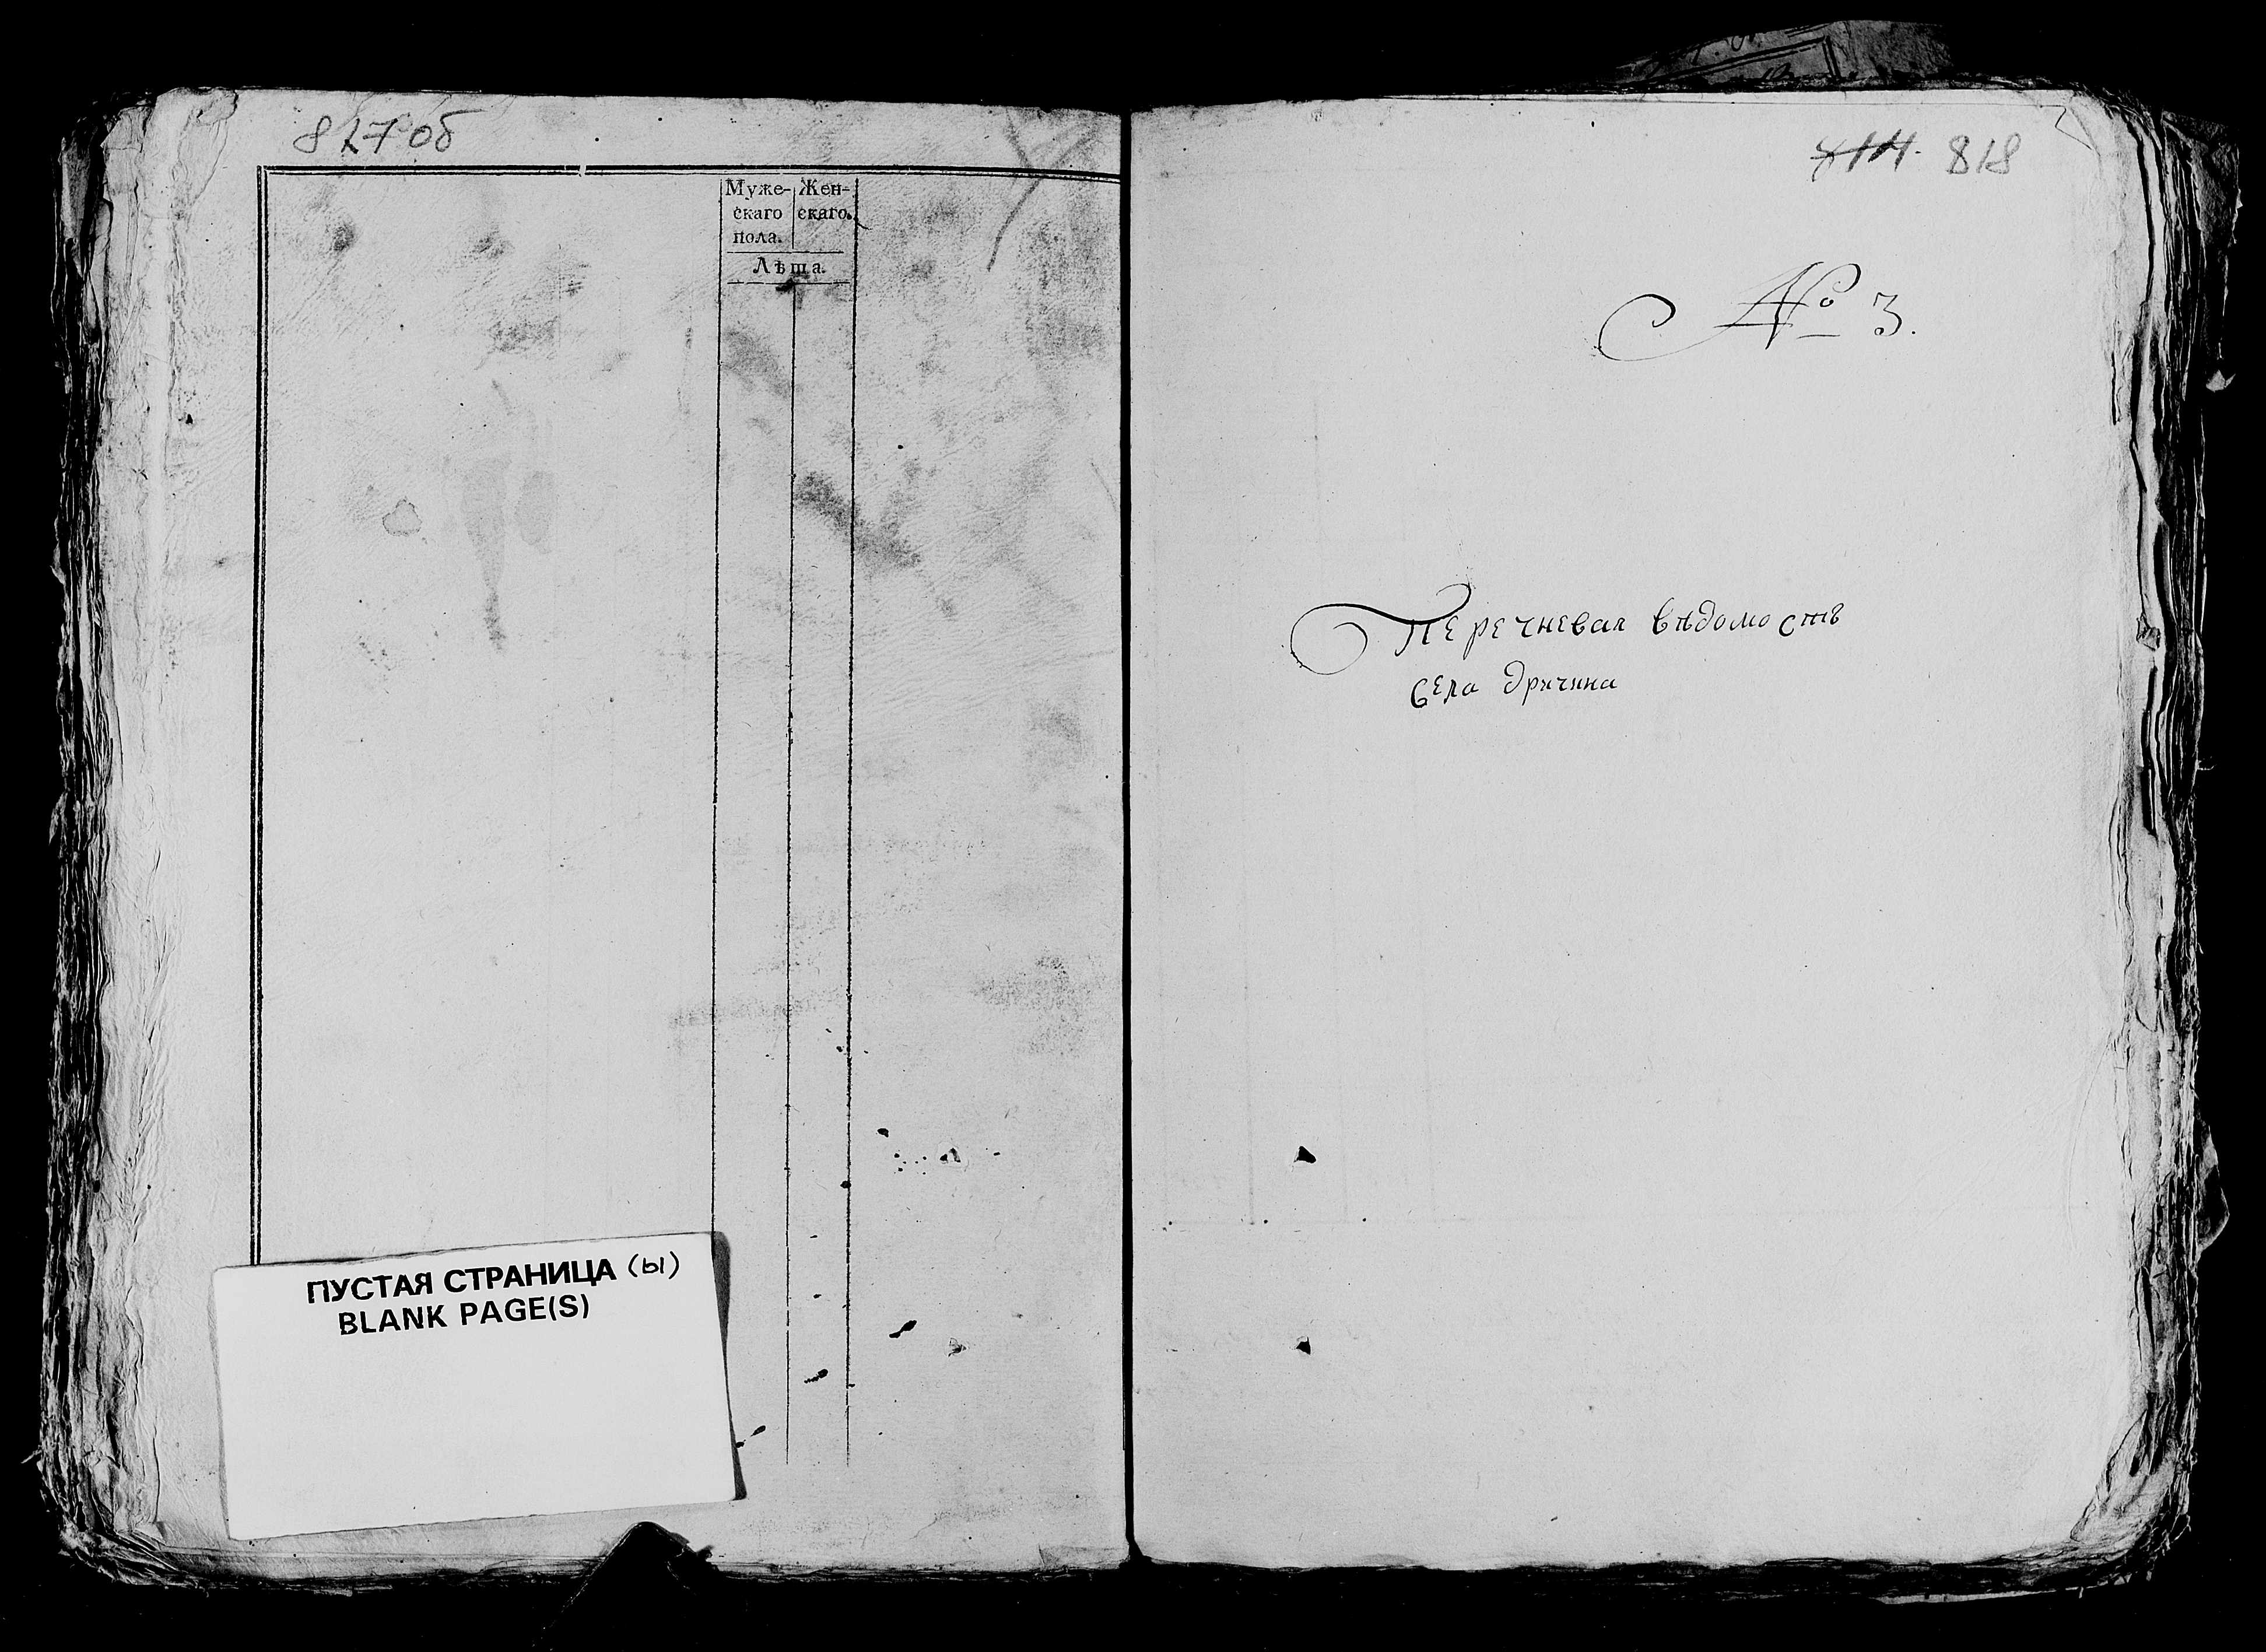 827 об
Муже- Жен-
скаго скаго.
пола.
Лѣта.
ПУСТАЯ СТРАНИЦА (Ы)
BLANK PAGE(S)
818
№ 3.
Перечневая вѣдомость
села дричина